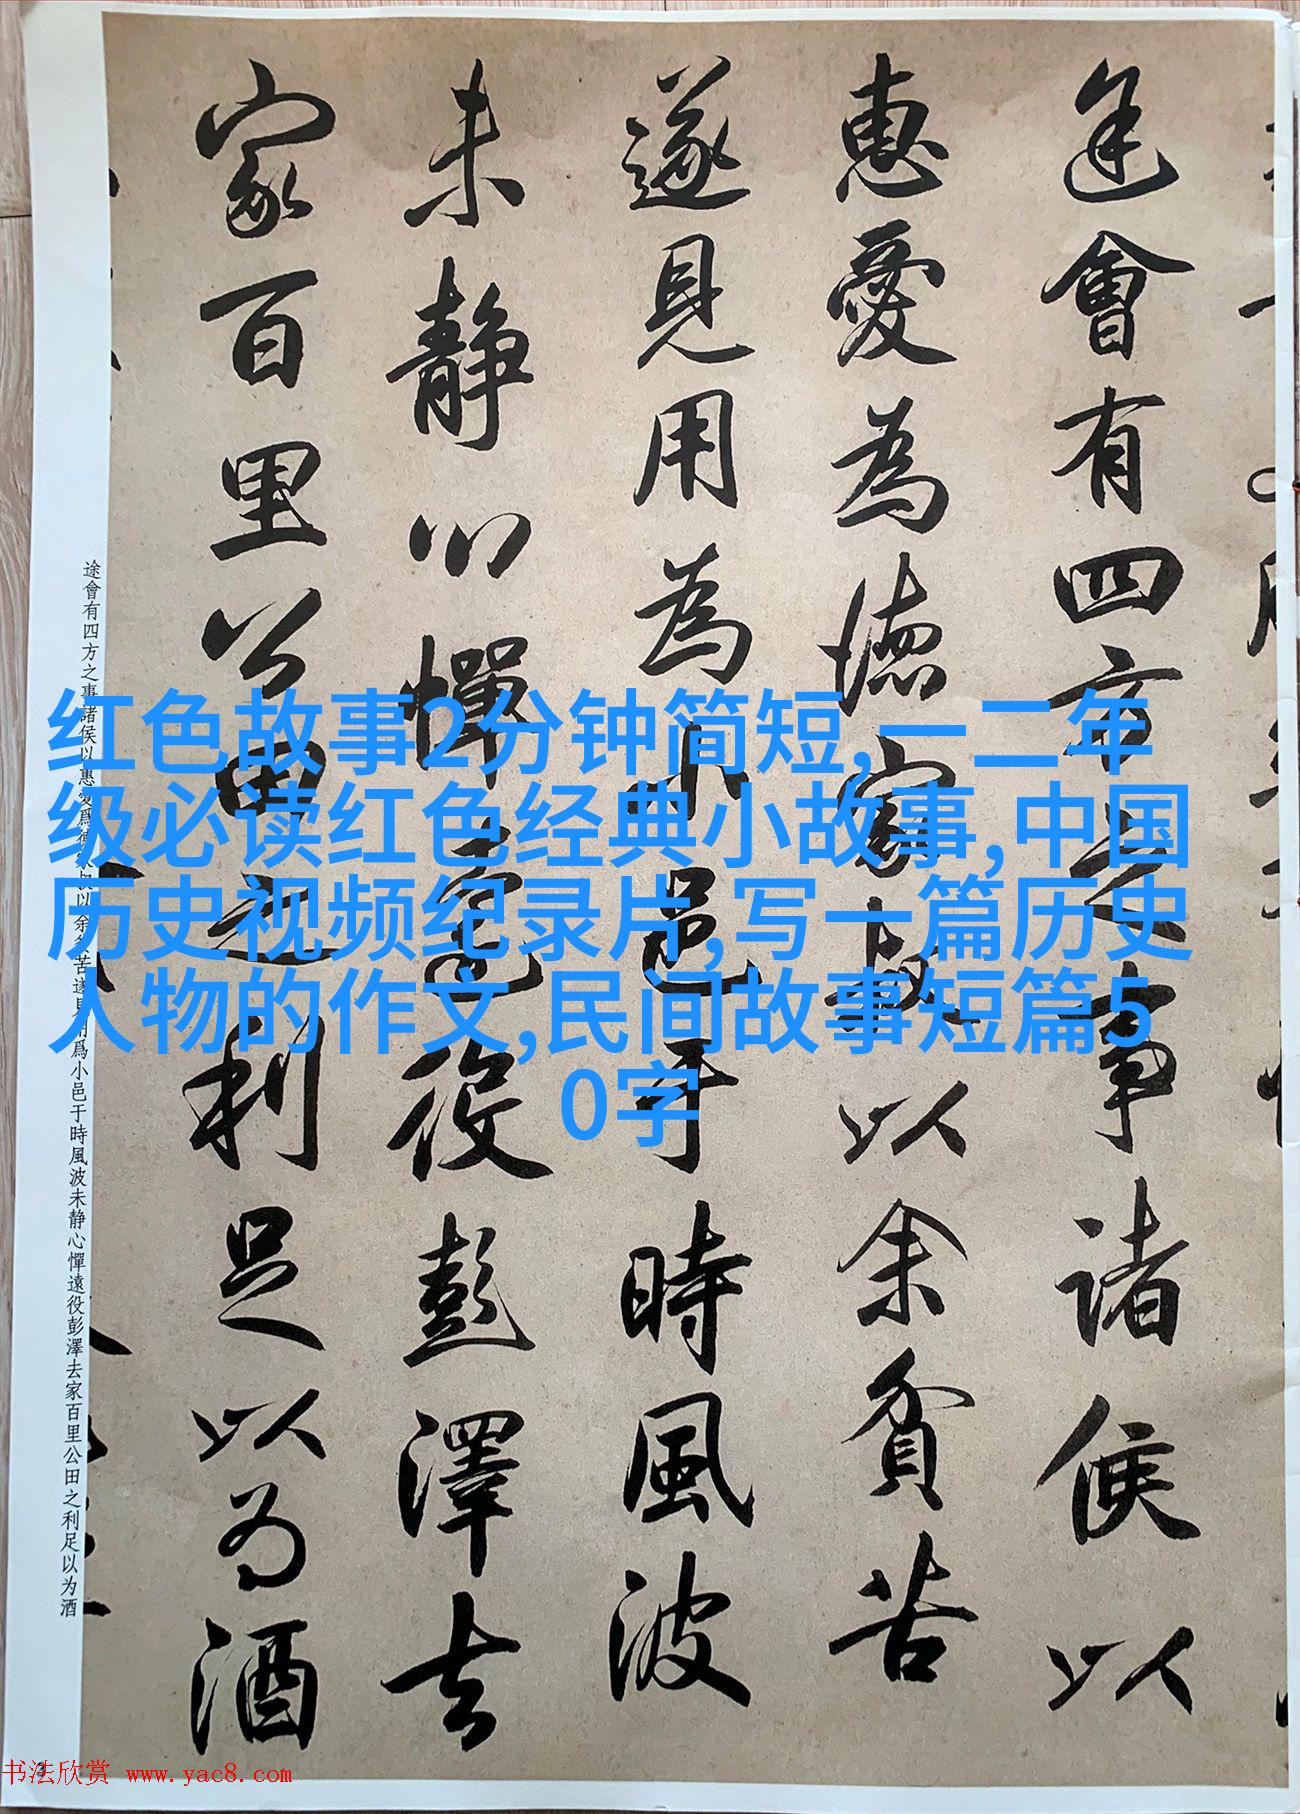 途會有四方之事諸侯以
惠愛為德家叔以余貧苦
遂見用為小邑于時風波
未静心憚遠役彭澤去
家百里公田之利足以为酒
途會有四方之事諸侯以惠愛爲德家叔以余貧苦遂見用爲小邑于時風波未静心憚遠役彭澤去家百里公田之利足以为酒
红色故事2分钟简短,一二年
级必读红色经典小故事,中国
历史视频纪录片,写一篇历史
人物的作文,民间故事短篇5
0字
3
书法欣赏 www.yac8.com